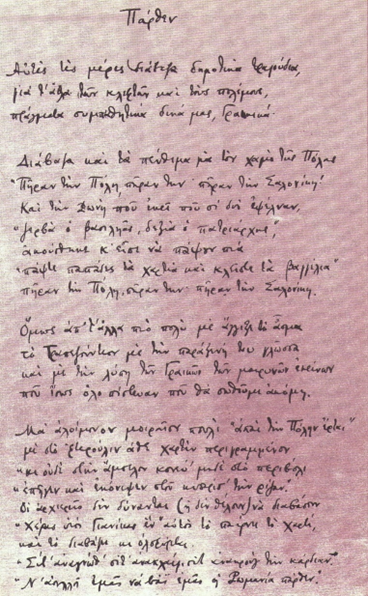 Πάρθεν
Αυτές τες μέρες διάβαζα δημοτικά τραγούδια,
για τ' άθλα των κλεφτών και τους πολέμους,
πράγματα συμπαθητικά· δικά μας, Γραικικά.
Διάβαζα και τα πένθιμα για τον χαμό της Πόλης
"Πήραν την Πόλη, πήραν την· πήραν την Σαλονίκη."
Και την Φωνή που εκεί που οι δυο έψελναν,
"ζερβά ο βασιληάς, δεξιά ο πατριάρχης",
ακούσθηκε κ' είπε να πάψουν πια
"πάψτε παπάδες τα χαρτιά και κλείστε τα βαγγέλια"
πήραν την Πόλη, πήραν την· πήραν την Σαλονίκη.
Όμως απ' τ' άλλα πιο πολύ με άγγιξε το άσμα
το Τραπεζούντιον με την παράξενή του γλώσσα
και με την λύπη των Γραικών των μακρυνών εκείνων
που ίσως όλο πίστευαν που θα σωθούμε ακόμη.
Μα αλοίμονον μοιραίον πουλί "απαί την Πόλην έρται"
με στο "φτερούλιν άθε χαρτίν περιγραμμένον
"κι ουδέ στην άμπελον κονεύ' μηδέ στο περιβόλι
"επήγεν και εκόνεψεν στου κυπαρίσ' την ρίζαν."
Οι αρχιερείς δεν δύνανται (ή δεν θέλουν) να διαβάσουν
"Χέρας υιός Γιανίκας εν" αυτός το παίρνει το χαρτί,
και το διαβάζει κι ολοφύρεται.
"Σίτ' αναγνώθ' σίτ' ανακλαίγ' σίτ' ανακρούγ' την καρδίαν.
"Ν' αοιλλή εμάς να βάι εμάς η Ρωμανία πάρθεν."